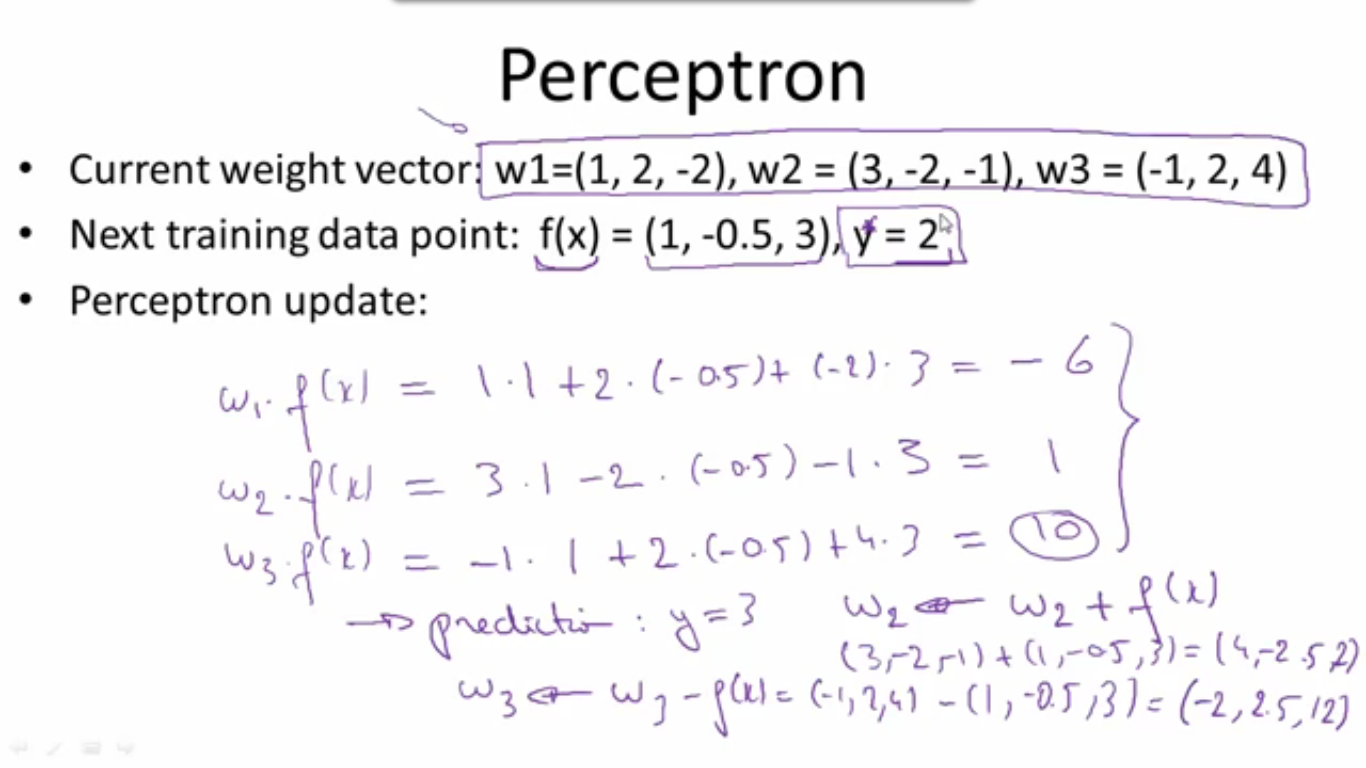 Perceptron
• Current weight vector: w1=(1, 2, -2), w2 = (3, -2, -1), w3 = (-1, 2, 4)
• Next training data point: f(x) = (1, -0.5, 3), y* = 2
• Perceptron update:
w₁·f(x) = 1·1 + 2·(-0.5) + (-2)·3 = -6
w₂·f(x) = 3·1 -2·(-0.5) -1·3 = 1
w₃·f(x) = -1·1 + 2·(-0.5) + 4·3 = 10
→ prediction: y=3
w₂ ← w₂ + f(x)
(3,-2,-1) + (1,-0.5,3) = (4,-2.5,2)
w₃ ← w₃ - f(x) = (-1,2,4) - (1,-0.5,3) = (-2,2.5,12)